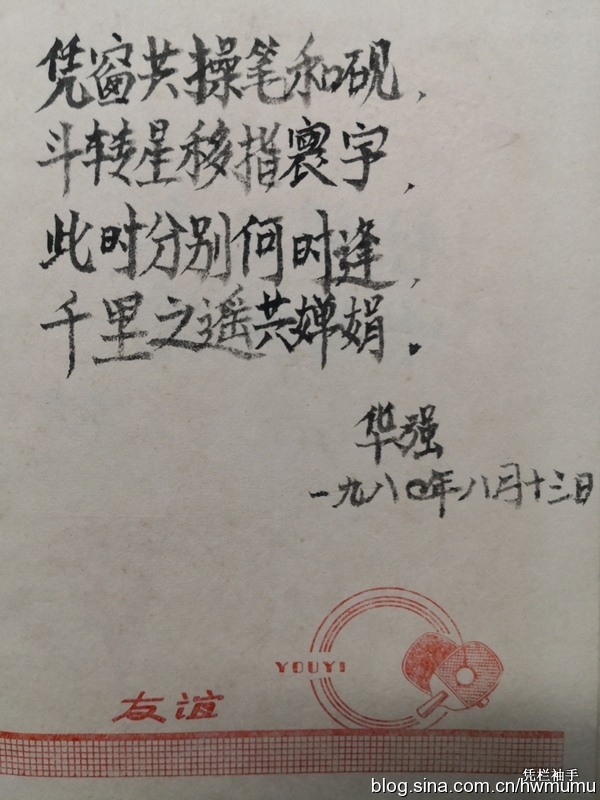 凭窗共操笔和砚，
斗转星移指寰宇，
此时分别何时逢，
千里之遥共婵娟．
华强
一九八〇年八月十三日
YOUYI
友谊
凭栏袖手
blog.sina.com.cn/hwmumu